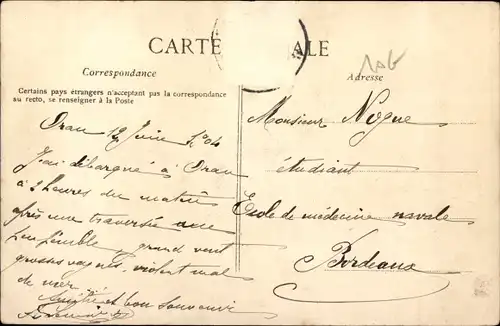 CARTE
ALE
Correspondance
Adresse
Certains pays étrangers n'acceptant pas la correspondance
au recto, se renseigner à la Poste
Oran 12 Juin 1904
J'ai débarqué à Oran
à 2 heures du matin
après une traversée une
peu pénible, grand vent
grosses vagues, violent mal
de mer.
Amitié et bon souvenir
Monsieur Nogue
étudiant
Ecole de médecine navale
Bordeaux